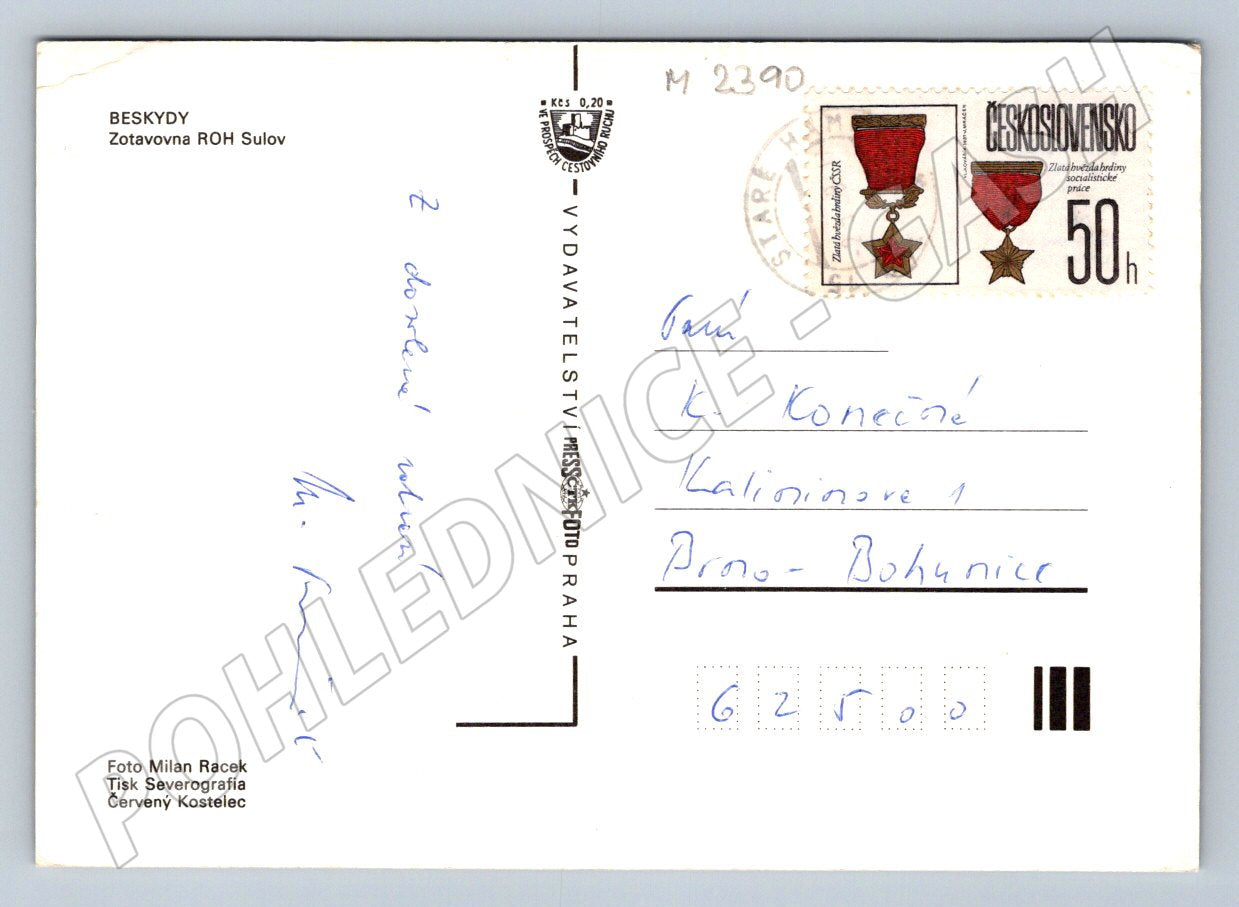 BESKYDY
Zotavovna ROH Sulov
Z dovolené
M.
Foto Milan Racek
Tisk Severografia
Červený Kostelec
Kčs 0,20
VE PROSPĚCH CESTOVNÍHO RUCHU
VYDAVATELSTVÍ PRESSFOTO PRAHA
ČTK
M 2390
STARÉ HAM
Zlatá hvězda hrdiny ČSSR
ČESKOSLOVENSKO
Zlatá hvězda hrdiny
socialistické
práce
50 h
Paní
K. Konečná
Kalininova 1
Brno - Bohunice
62500
POHLEDNICE - GASH